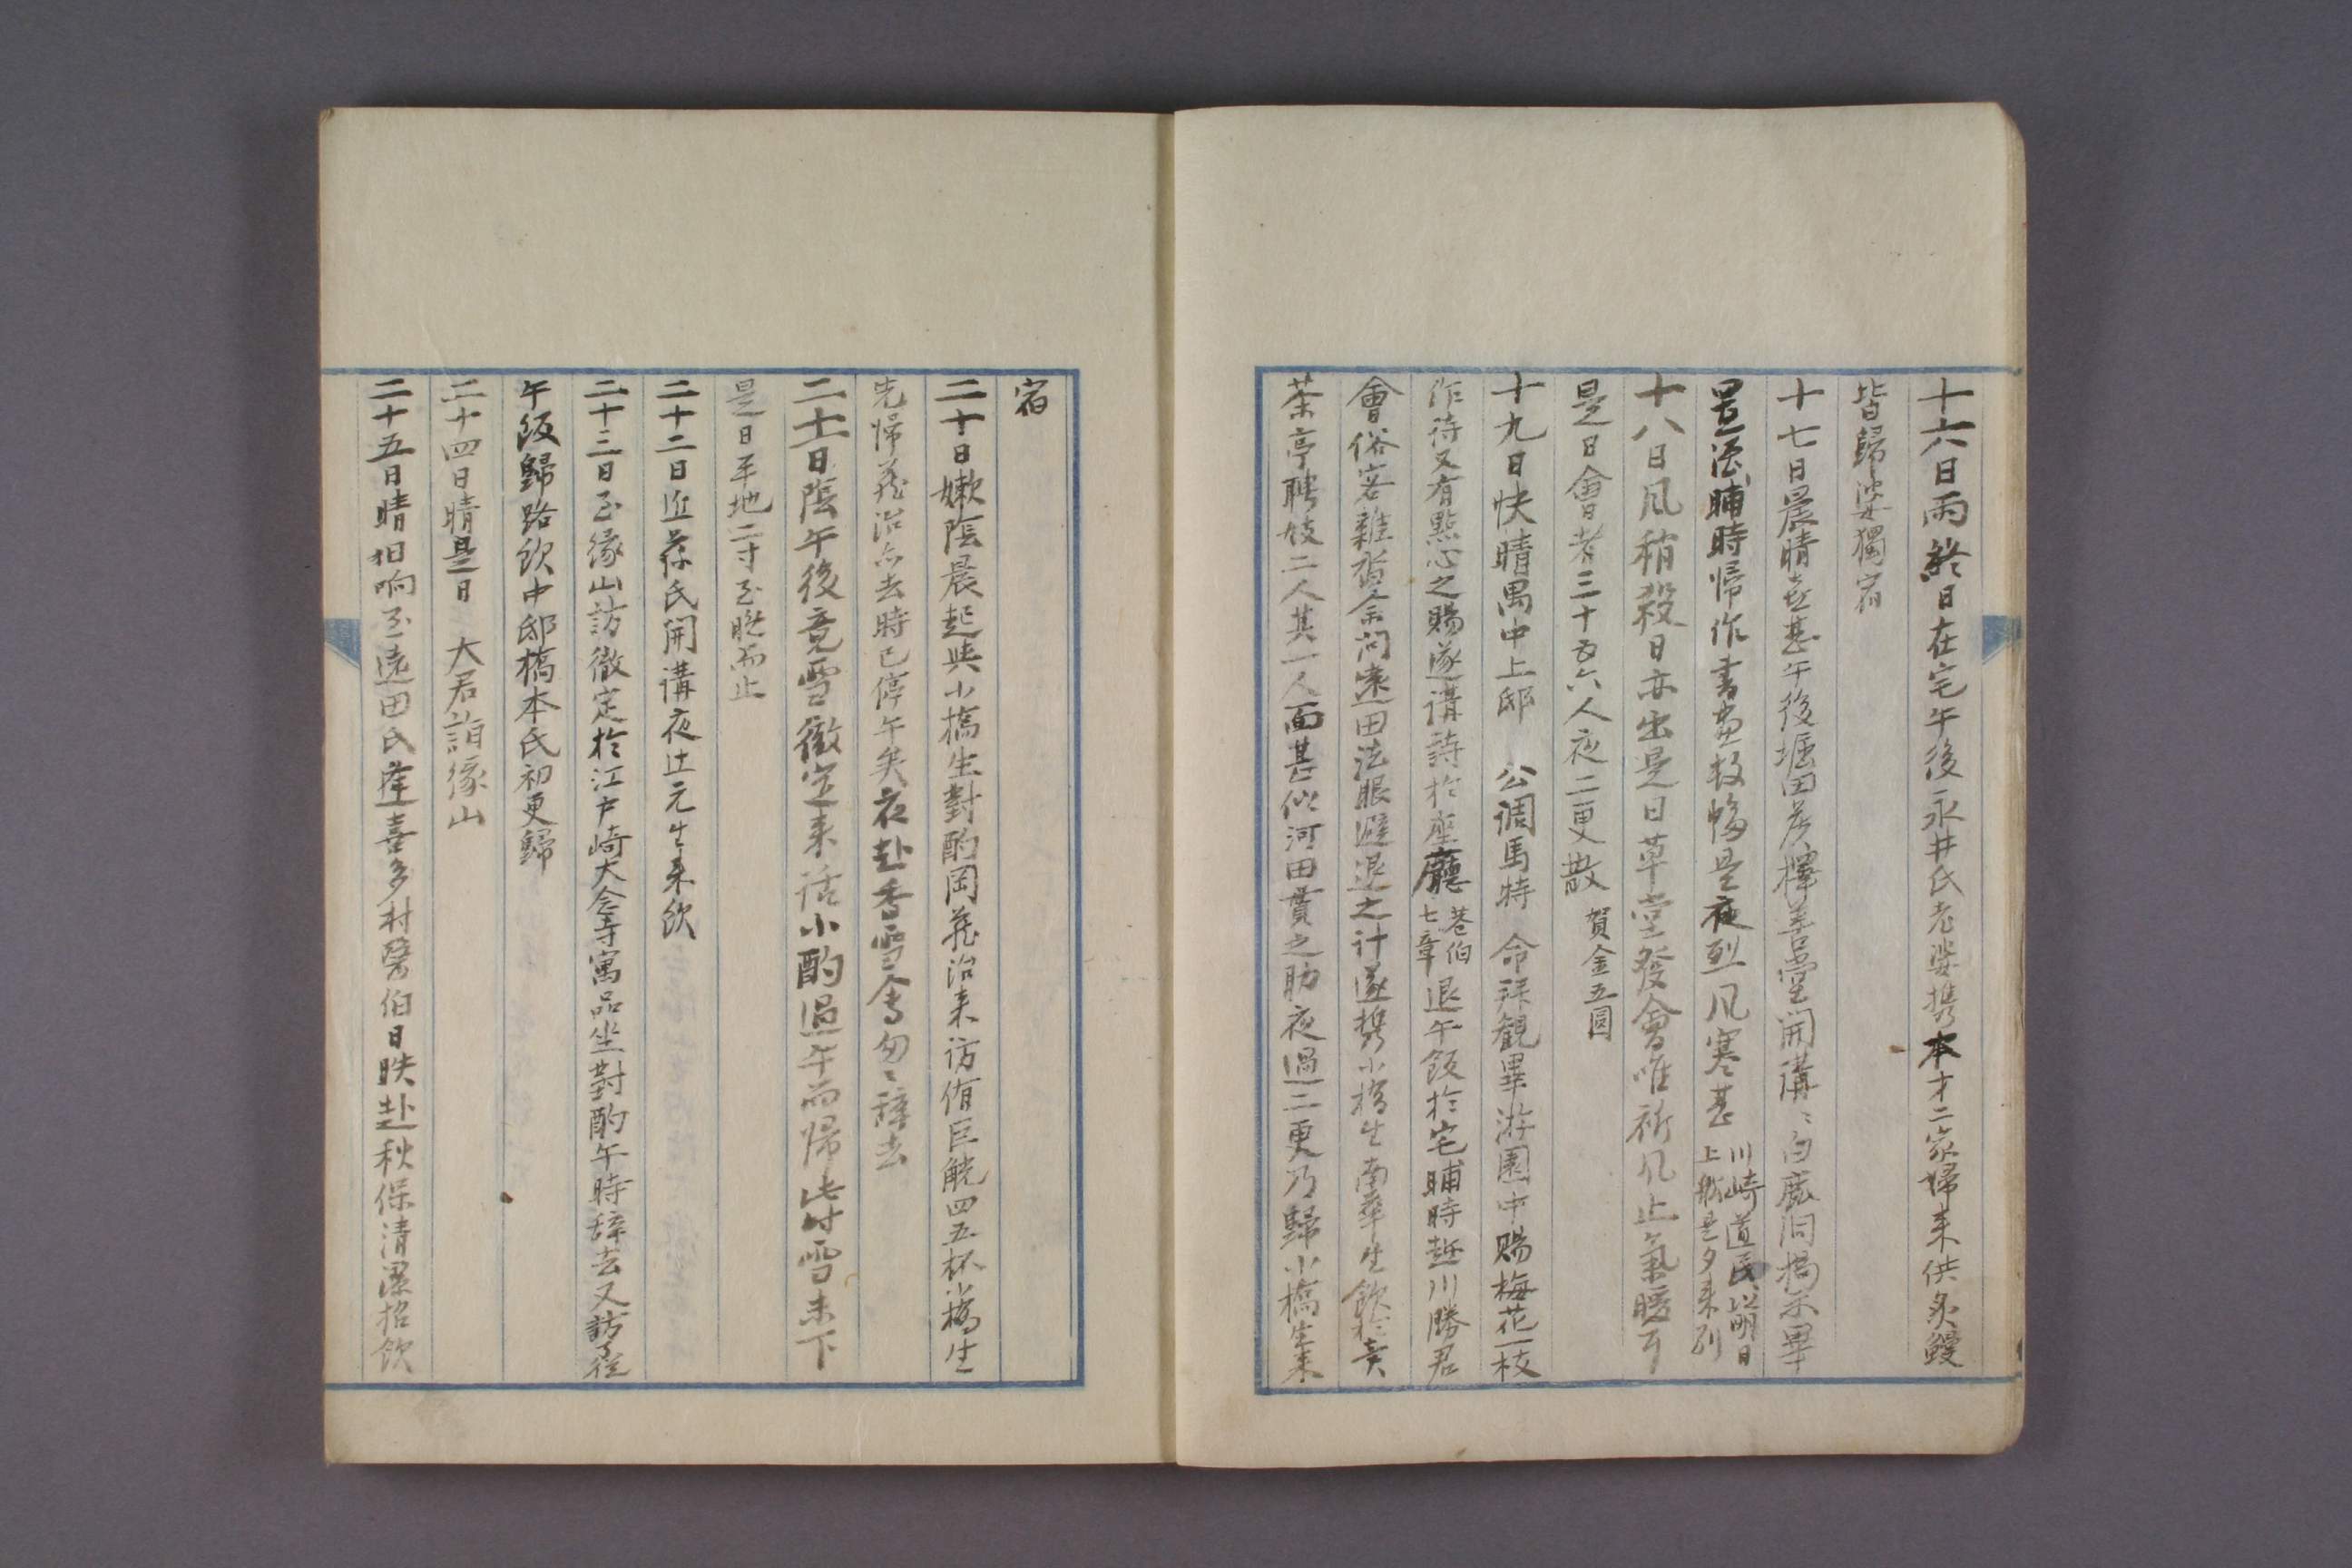 十六日雨終日在宅午後永井氏老婆携本才二家婦来供炙鰻
皆歸婆獨宿
十七日晨晴甚午後堀田君擇善堂開講〻白鹿洞掲示畢
置酒晡時帰作書畫数幅是夜烈風寒甚
川崎道民以明日
上船是夕来別
十八日風稍殺日亦出是日草堂發會唯祈風止氣暖耳
是日會者三十五六人夜二更散
賀金五圓
十九日快晴禺中上邸 公調馬特 命拜観畢游園中賜梅花一枝
作待又有點心之賜遂講詩於座廳
巷伯
七章
退午飯於宅晡時赴川勝君
會俗客雜沓余問遠田法眼避退之計遂携小橋生南華生飲於賣
茶亭聘妓二人其一人面甚似河田貫之助夜過二更乃歸小橋生来
宿
二十日嫩陰晨起與小橋生對酌岡莊治来訪侑巨觥四五杯小橋生
先帰莊治亦去時已停午矣夜赴香雪會匆〻辞去
二十一日陰午後竟雪徹定来話小酌過午而帰此时雪未下
是日平地二寸至晩而止
二十二日近藤氏開講夜辻元生来飲
二十三日至縁山訪徹定於江戸崎大念寺寓品坐對酌午時辞去又訪
午飯歸路飲中邸橋本氏初更歸
二十四日晴是日 大君詣縁山
二十五日晴旭晌至遠田氏逢喜多村醫伯日昳赴秋保清潔招飲